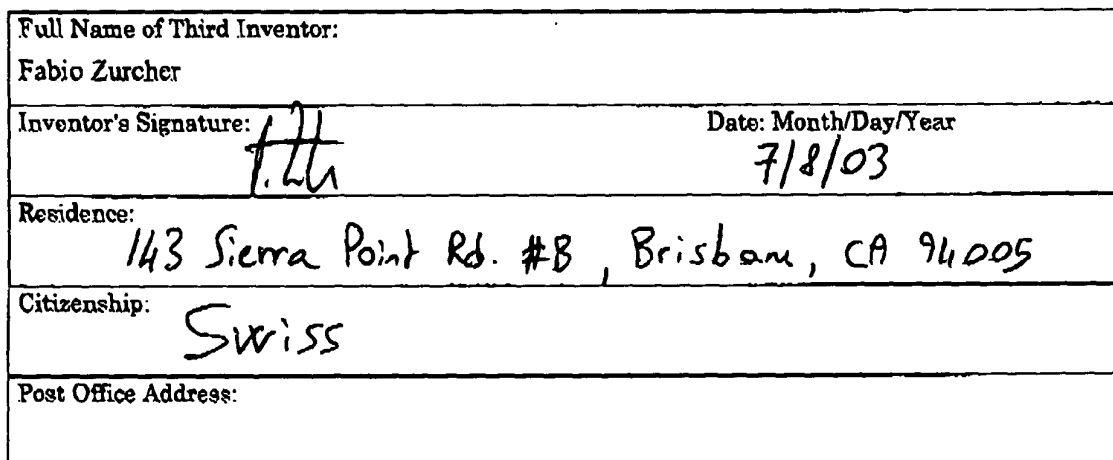 Full Name of Third Inventor:
Fabio Zurcher
Inventor's Signature: Date: Month/Day/Year
7/8/03
Residence:
143 Sierra Point Rd. #B, Brisbane, CA 94005
Citizenship:
Swiss
Post Office Address: